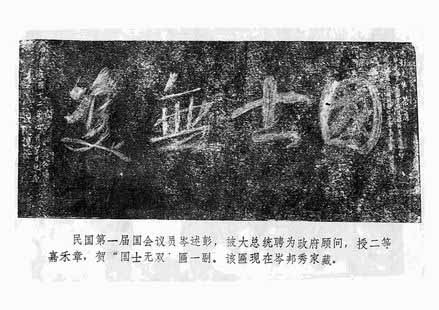 國士無雙
民国第一届国会议员岑述彭，被大总统聘为政府顾问，授二等
嘉禾章，贺“国士无双”匾一副。该匾现在岑邦秀家藏。